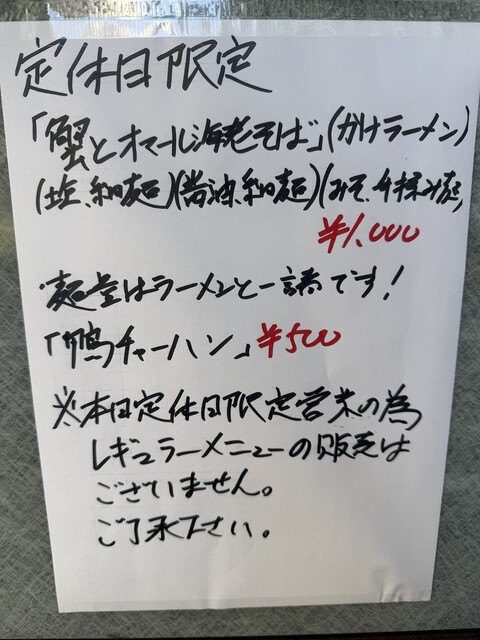 定休日限定
「蟹とオマール海老そば」(かけラーメン)
(塩、細麺)(醤油、細麺)(みそ、手揉み麺)
¥1,000
・麺量はラーメンと一諸です!
「鴨チャーハン」¥500
※本日定休日限定営業の為
レギュラーメニューの販売は
ございません。
ご了承下さい。